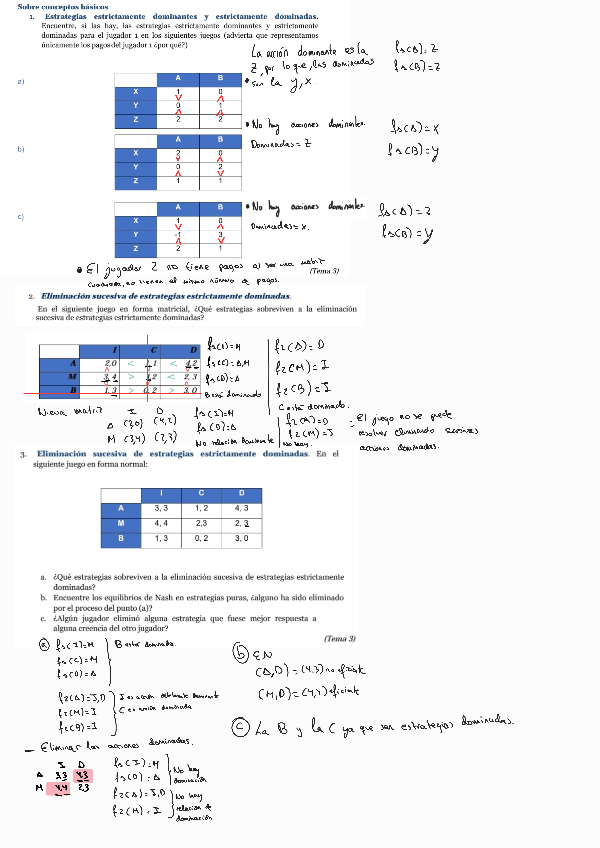 Sobre conceptos básicos
1. Estrategias estrictamente dominantes y estrictamente dominadas.
Encuentre, si las hay, las estrategias estrictamente dominantes y estrictamente
dominadas para el jugador 1 en los siguientes juegos (advierta que representamos
únicamente los pagos del jugador 1 ¿por qué?)
La acción dominante es la
Z, por lo que, las dominadas
son la y, x.
fs(A)=Z
fs(B)=Z
a)
A B
X 1 0
Y 0 1
Z 2 2
• No hay acciones dominantes.
Dominadas = Z
fs(A)=X
fs(B)=Y
b)
A B
X 2 0
Y 0 2
Z 1 1
• No hay acciones dominantes
Dominadas = X.
fs(A)=Z
fs(B)=Y
c)
A B
X 1 0
Y -1 3
Z 2 1
• El jugador 2 no tiene pagos al ser una matriz
cuadrada, no tienen el mismo número de pagos.
(Tema 3)
2. Eliminación sucesiva de estrategias estrictamente dominadas.
En el siguiente juego en forma matricial, ¿Qué estrategias sobreviven a la eliminación
sucesiva de estrategias estrictamente dominadas?
I C D
A 2,0 < 1,1 < 4,2
M 3,4 > 1,2 < 2,3
B 1,3 > 0,2 > 3,0
fs(I)=M
fs(C)=A,M
fs(D)=A
B está dominado
f2(A)=D
f2(M)=I
f2(B)=I
C está dominado.
Nueva matriz
I D
A (2,0) (4,2)
M (3,4) (2,3)
fs(I)=M
fs(D)=A
No relación dominante
f2(A)=D
f2(M)=I
No hay.
= El juego no se puede
resolver eliminando
acciones dominadas.
3. Eliminación sucesiva de estrategias estrictamente dominadas. En el
siguiente juego en forma normal:
I C D
A 3, 3 1, 2 4, 3
M 4, 4 2,3 2, 3
B 1, 3 0, 2 3, 0
a. ¿Qué estrategias sobreviven a la eliminación sucesiva de estrategias estrictamente
dominadas?
b. Encuentre los equilibrios de Nash en estrategias puras, ¿alguno ha sido eliminado
por el proceso del punto (a)?
c. ¿Algún jugador eliminó alguna estrategia que fuese mejor respuesta a
alguna creencia del otro jugador?
(Tema 3)
a fs(I)=M
fs(C)=M
fs(D)=A
B está dominada.
f2(A)=I,D
f2(M)=I
f2(B)=I
I es acción débilmente dominante
C es acción dominada
b EN
(A,D)=(4,3) no eficiente
(M,D)=(4,4) eficiente
c La B y la C ya que son estrategias dominadas.
— Eliminar las acciones dominadas.
I D
A 3,3 4,3
M 4,4 2,3
fs(I)=M
fs(D)=A
No hay
dominación
f2(A)=I,D
f2(M)=I
No hay
relación de
dominación